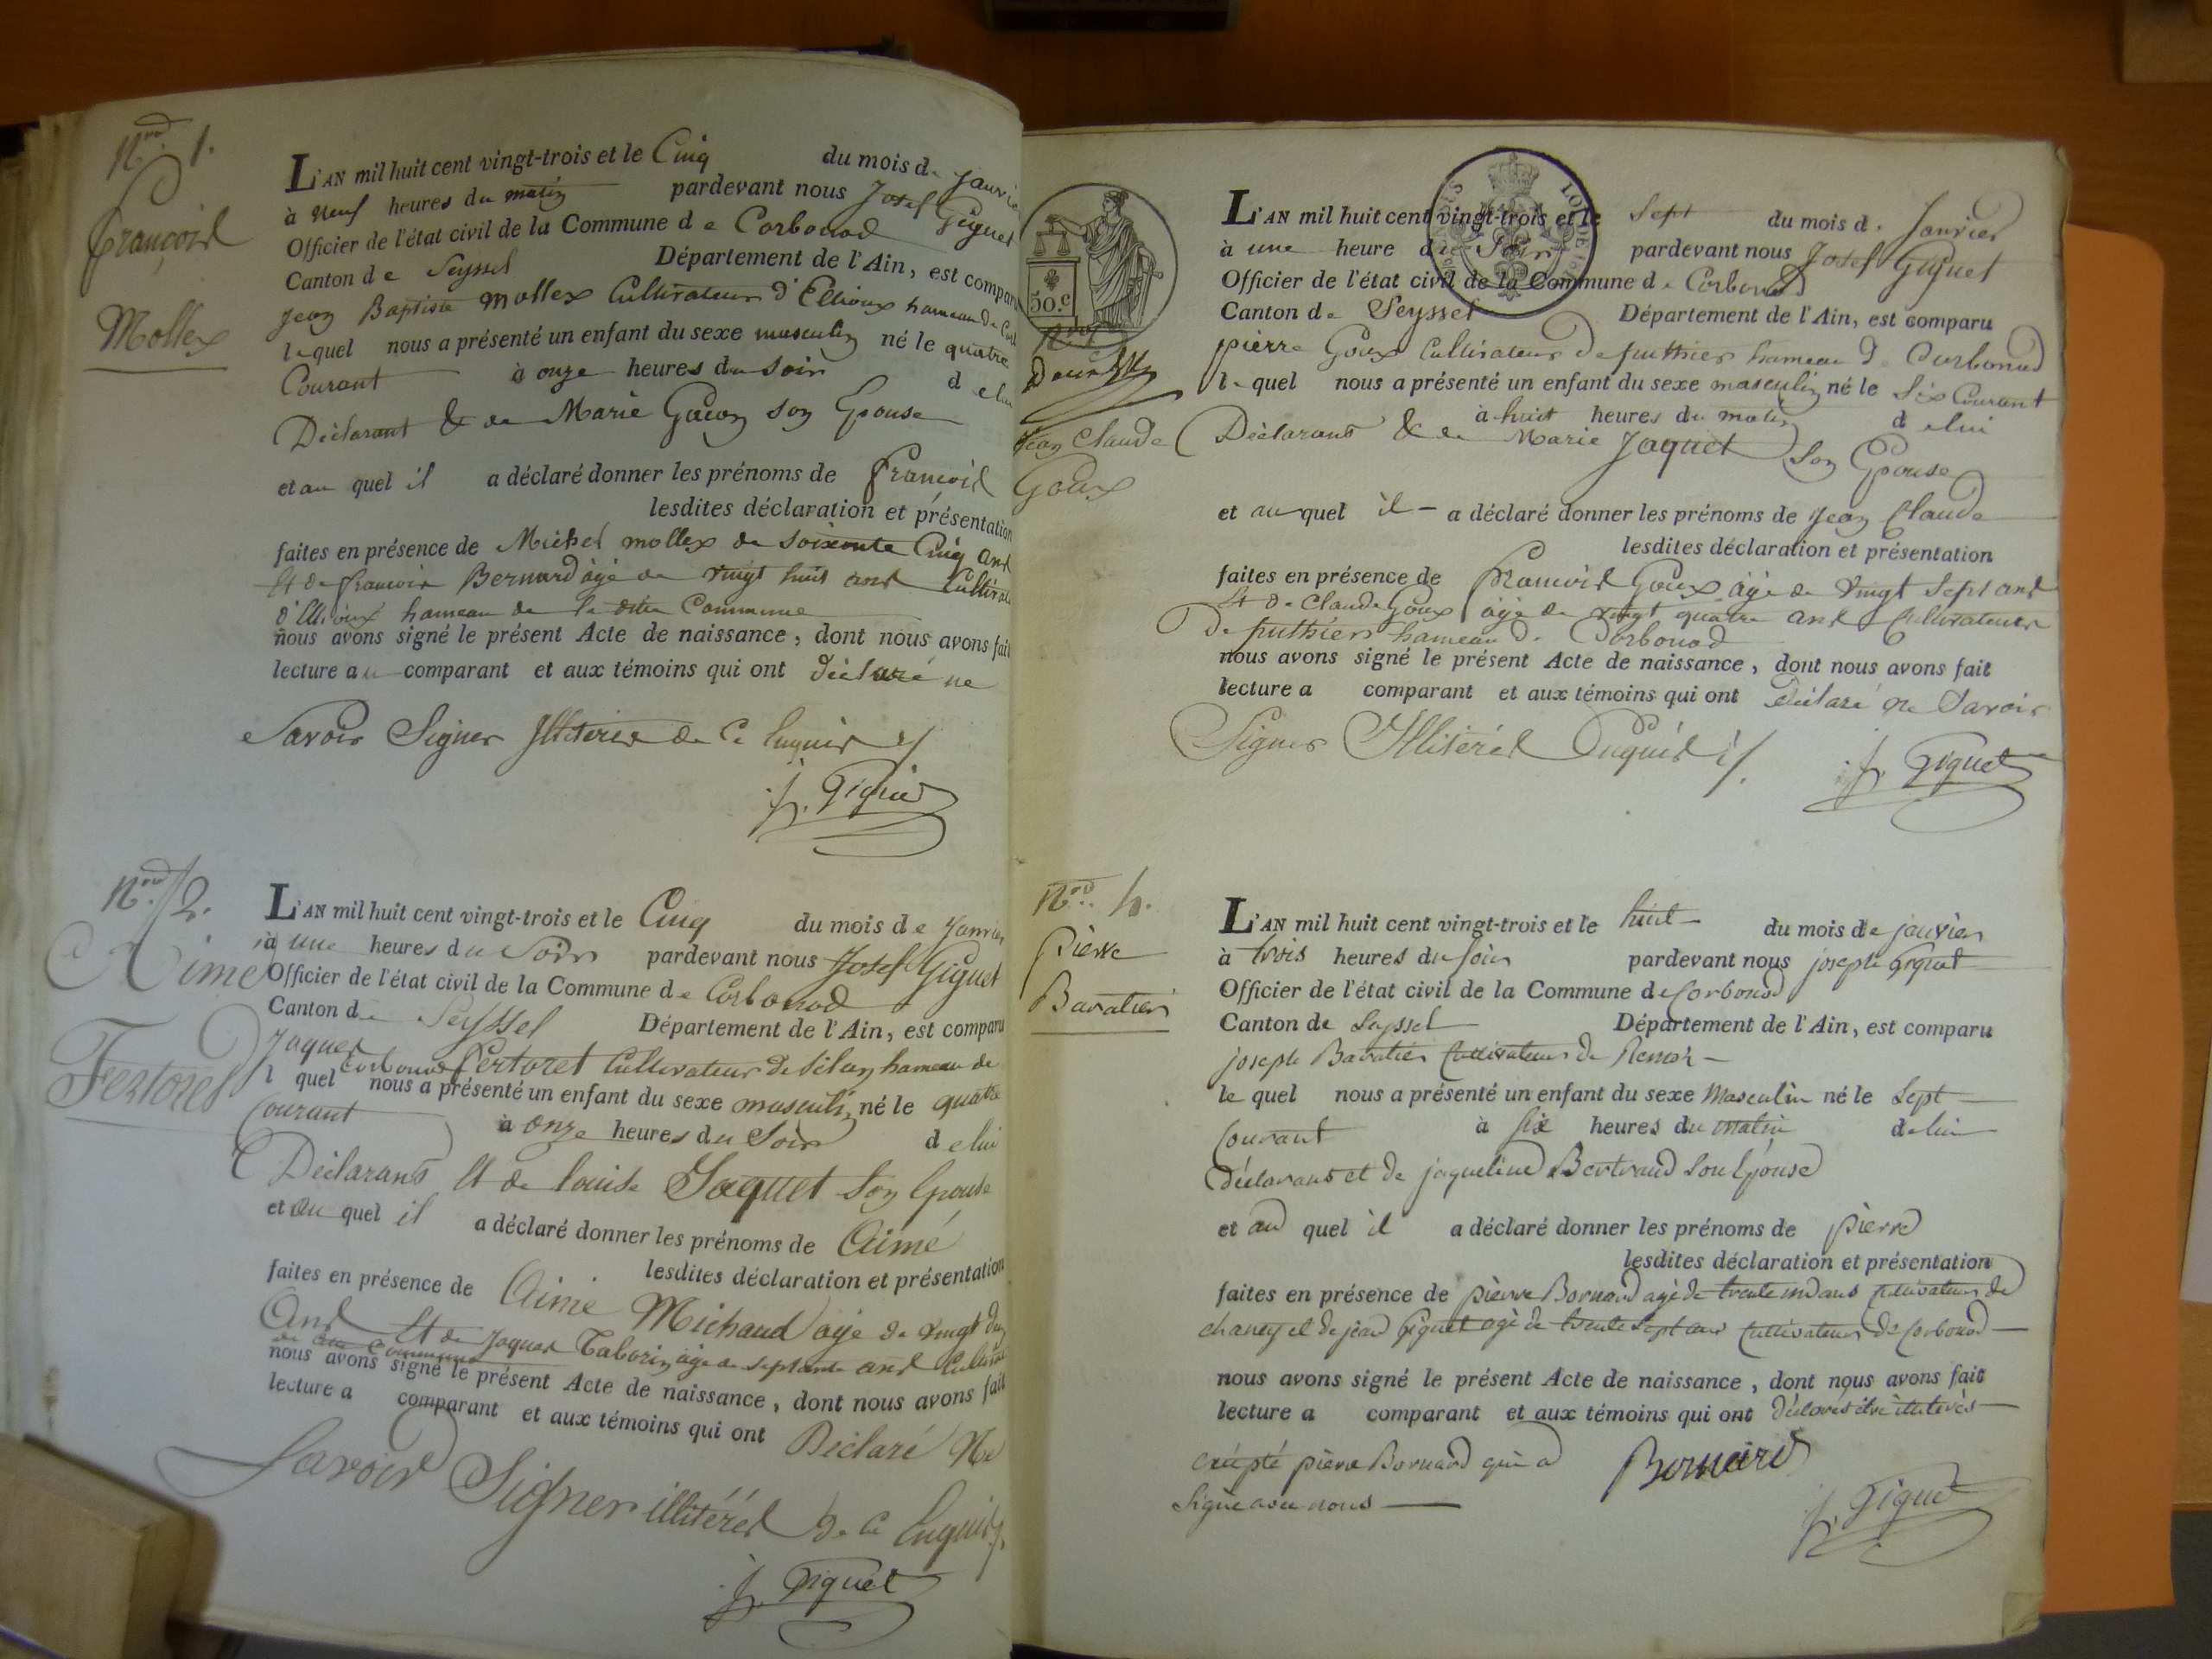 Nro. 1.
François
Mollex
L'AN mil huit cent vingt-trois et le Cinq du mois de Janvier
à neuf heures du matin pardevant nous Josef Giguet
Officier de l'état civil de la Commune de Corbonod
Canton de Seyssel Département de l'Ain, est comparu
Jean Baptiste Mollex Cultivateur d'Ellioux hameau de
lequel nous a présenté un enfant du sexe masculin né le quatre
Courant à onze heures du soir de lui
Déclarant & de Marie Gacon son Epouse
et au quel il a déclaré donner les prénoms de François
lesdites déclaration et présentation
faites en présence de Michel mollex de soixante Cinq ans
Et de françois Bernard âgé de vingt huit ans
d'Ellioux hameau de la dite Commune
nous avons signé le présent Acte de naissance, dont nous avons fait
lecture au comparant et aux témoins qui ont déclaré ne
Savoir Signer de ce Enquis
j. Giguet
Nro. 2.
Aimé
Fertoret
L'AN mil huit cent vingt-trois et le Cinq du mois de Janvier
à une heures du Soir pardevant nous Josef Giguet
Officier de l'état civil de la Commune de Corbonod
Canton de Seyssel Département de l'Ain, est comparu
Jaques Fertoret Cultivateur de Silan hameau de
Corbonod
l quel nous a présenté un enfant du sexe masculin né le quatre
Courant à onze heures du Soir de lui
Déclarans Et de Louise Jaquet son Epouse
et au quel il a déclaré donner les prénoms de Aimé
lesdites déclaration et présentation
faites en présence de Aimé Michaud âgé de vingt
Ans Et de Jaques Taborin âgé de septante ans
nous avons signé le présent Acte de naissance, dont nous avons fait
lecture a comparant et aux témoins qui ont Déclaré Ne
Savoir Signer illitérés de ce Enquis
j. Giguet
50.c
Jean Claude
Goux
L'AN mil huit cent vingt-trois et le Sept du mois d. Janvier
à une heure du Soir pardevant nous Josef Giguet
Officier de l'état civil de la Commune de Corbonod
Canton de Seyssel Département de l'Ain, est comparu
pierre Goux Cultivateur de puthier hameau de Corbonod
le quel nous a présenté un enfant du sexe masculin né le Six Courant
à huit heures du matin de lui
Déclarans & de Marie Jaquet Son Epouse
et au quel il a déclaré donner les prénoms de Jean Claude
lesdites déclaration et présentation
faites en présence de François Goux âgé de vingt Sept ans
Et de Claude Goux âgé de vingt quatre ans Cultivateurs
De puthier hameau de Corbonod
nous avons signé le présent Acte de naissance, dont nous avons fait
lecture a comparant et aux témoins qui ont Déclaré ne Savoir
Signer Illitérés Enquis
j. Giguet
Nro. 4.
Pierre
Bavatier
L'AN mil huit cent vingt-trois et le huit du mois de janvier
à trois heures du soir pardevant nous joseph Giguet
Officier de l'état civil de la Commune de Corbonod
Canton de Seyssel Département de l'Ain, est comparu
joseph Bavatier Cultivateur de Remoz
le quel nous a présenté un enfant du sexe Masculin né le Sept
Courant à six heures du matin de lui
déclarans et de jaqueline Bertrand son Epouse
et au quel il a déclaré donner les prénoms de pierre
lesdites déclaration et présentation
faites en présence de pierre Bornard agé de trente un ans Cultivateur de
chaney et de jean Giguet agé de trente sept ans Cultivateur de Corbonod
nous avons signé le présent Acte de naissance, dont nous avons fait
lecture a comparant et aux témoins qui ont déclarés être illiterés
exepté pierre Bornard qui a
Signé avec nous
Bornard
j. Giguet